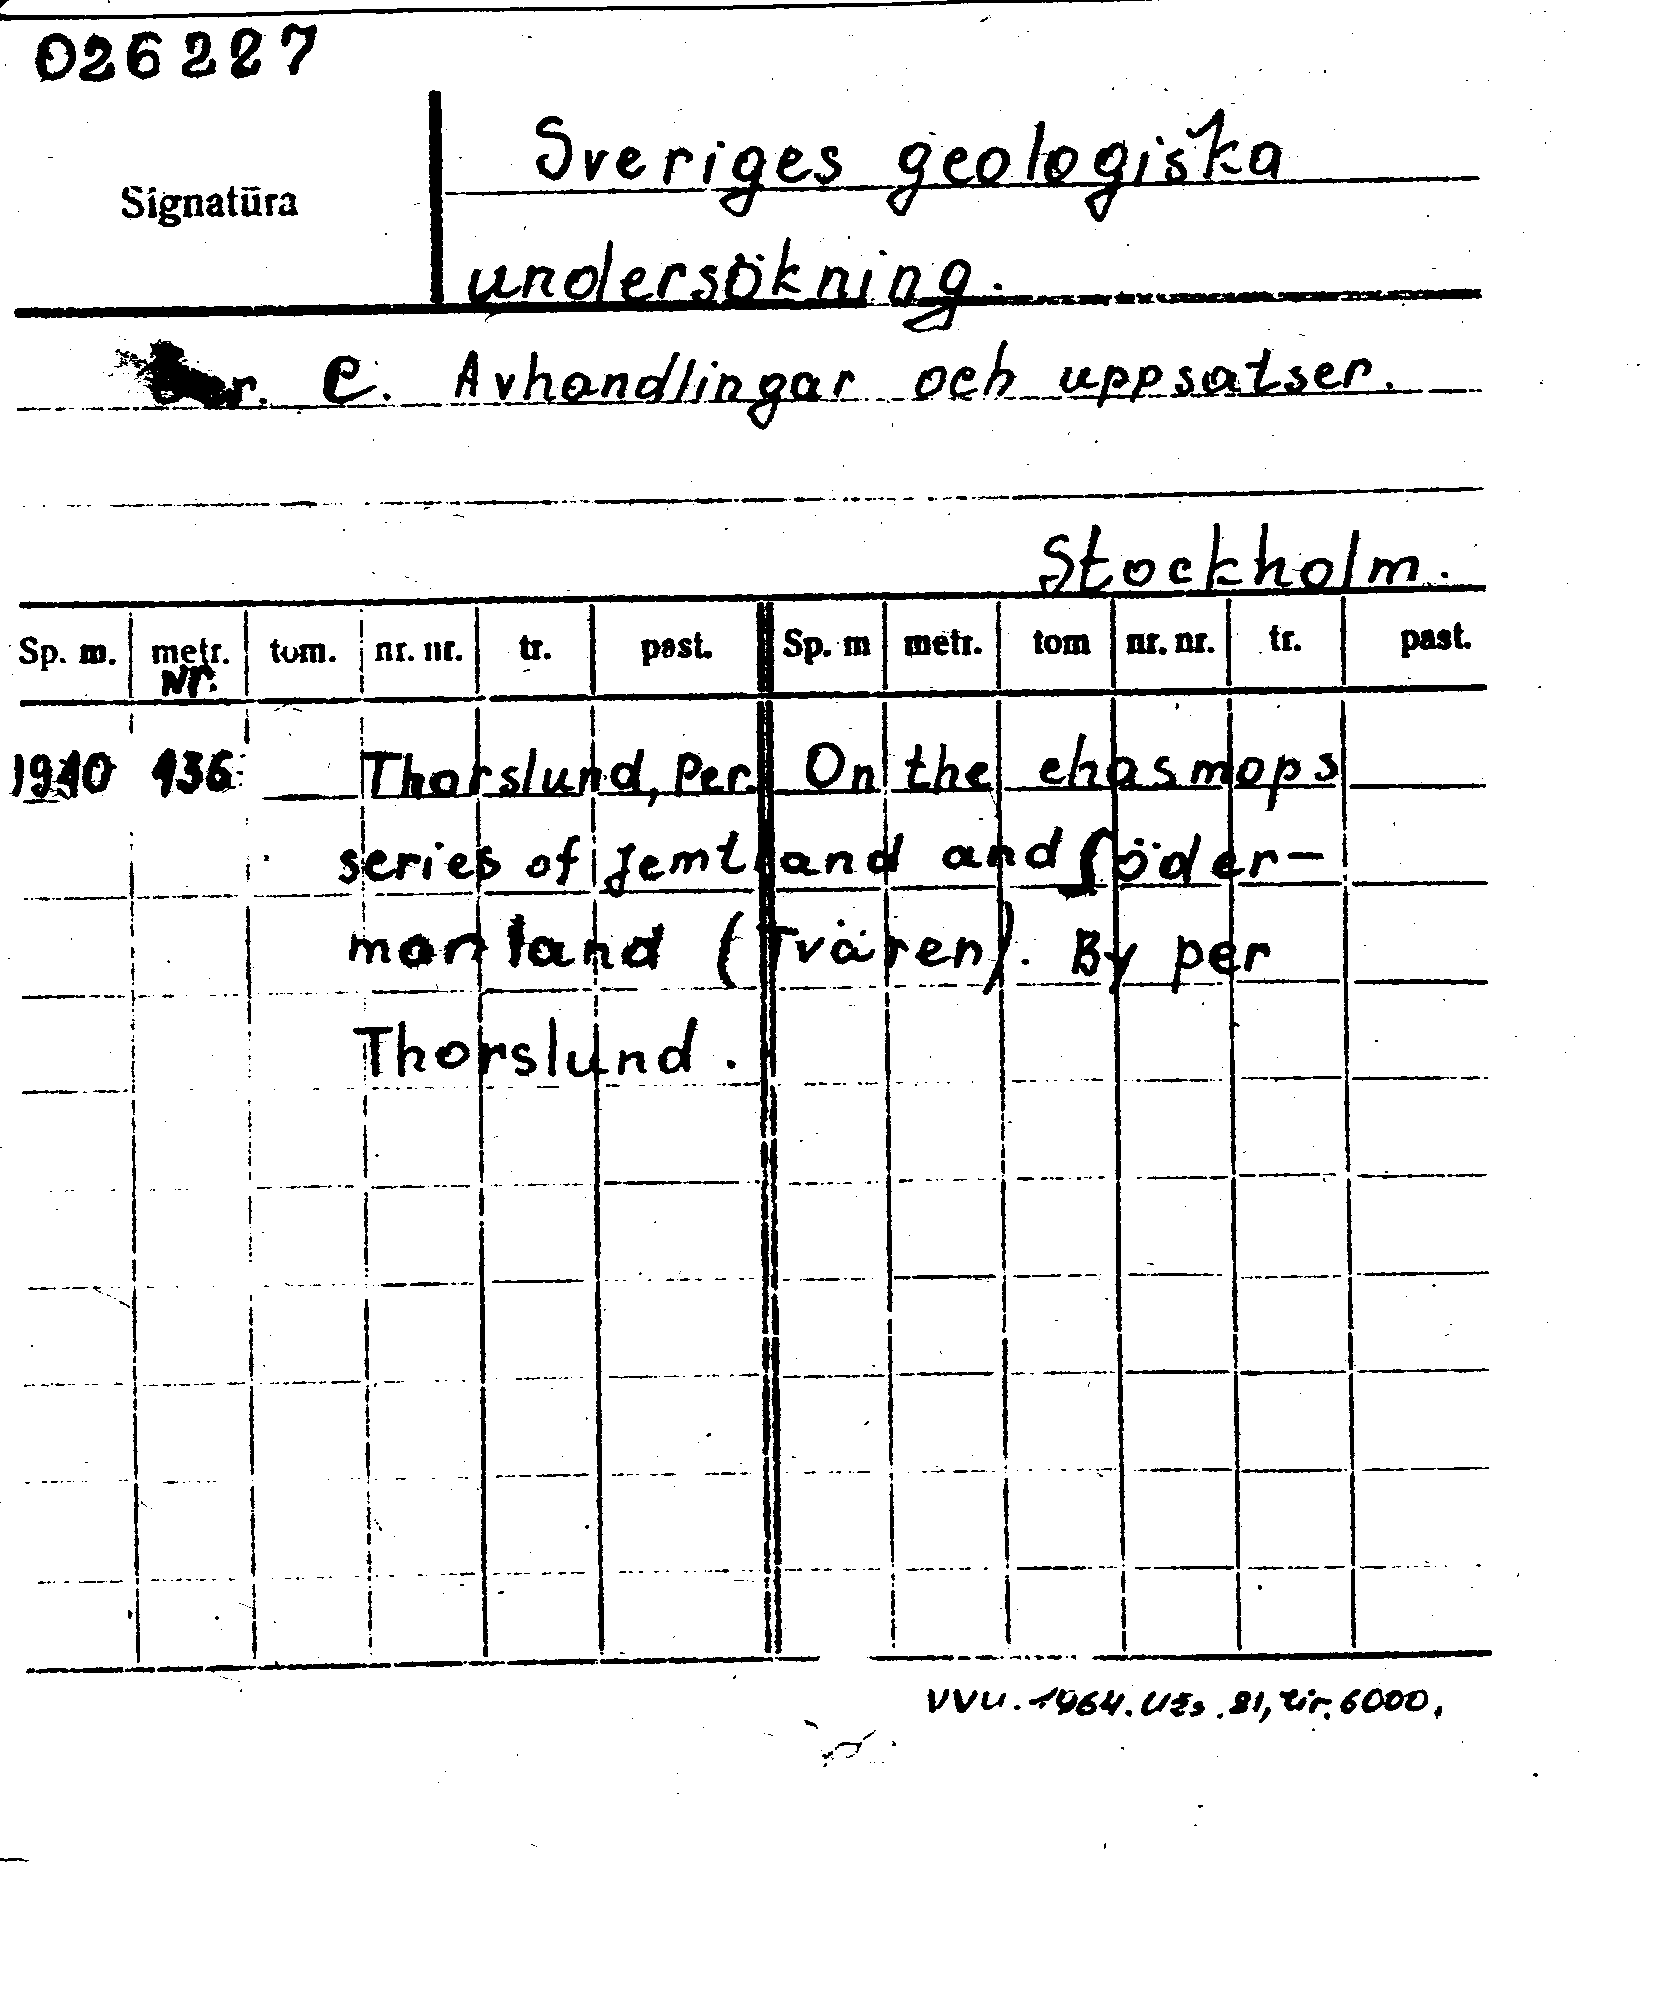 026227
Sveriges geologiska
Signatūra
undersökning.
Ser. C. Avhandlingar och uppsatser.
Stockholm.
Sp. m. metr. tom. nr. nr. tr. past. Sp. m metr. tom nr. nr. tr. past.
Nr.
1940 436 Thorslund, Per. On the chasmops
series of Jemtland and Söder-
manland (Tvären). By per
Thorslund.
VVU. 1964. Užs. 81, tir. 6000.